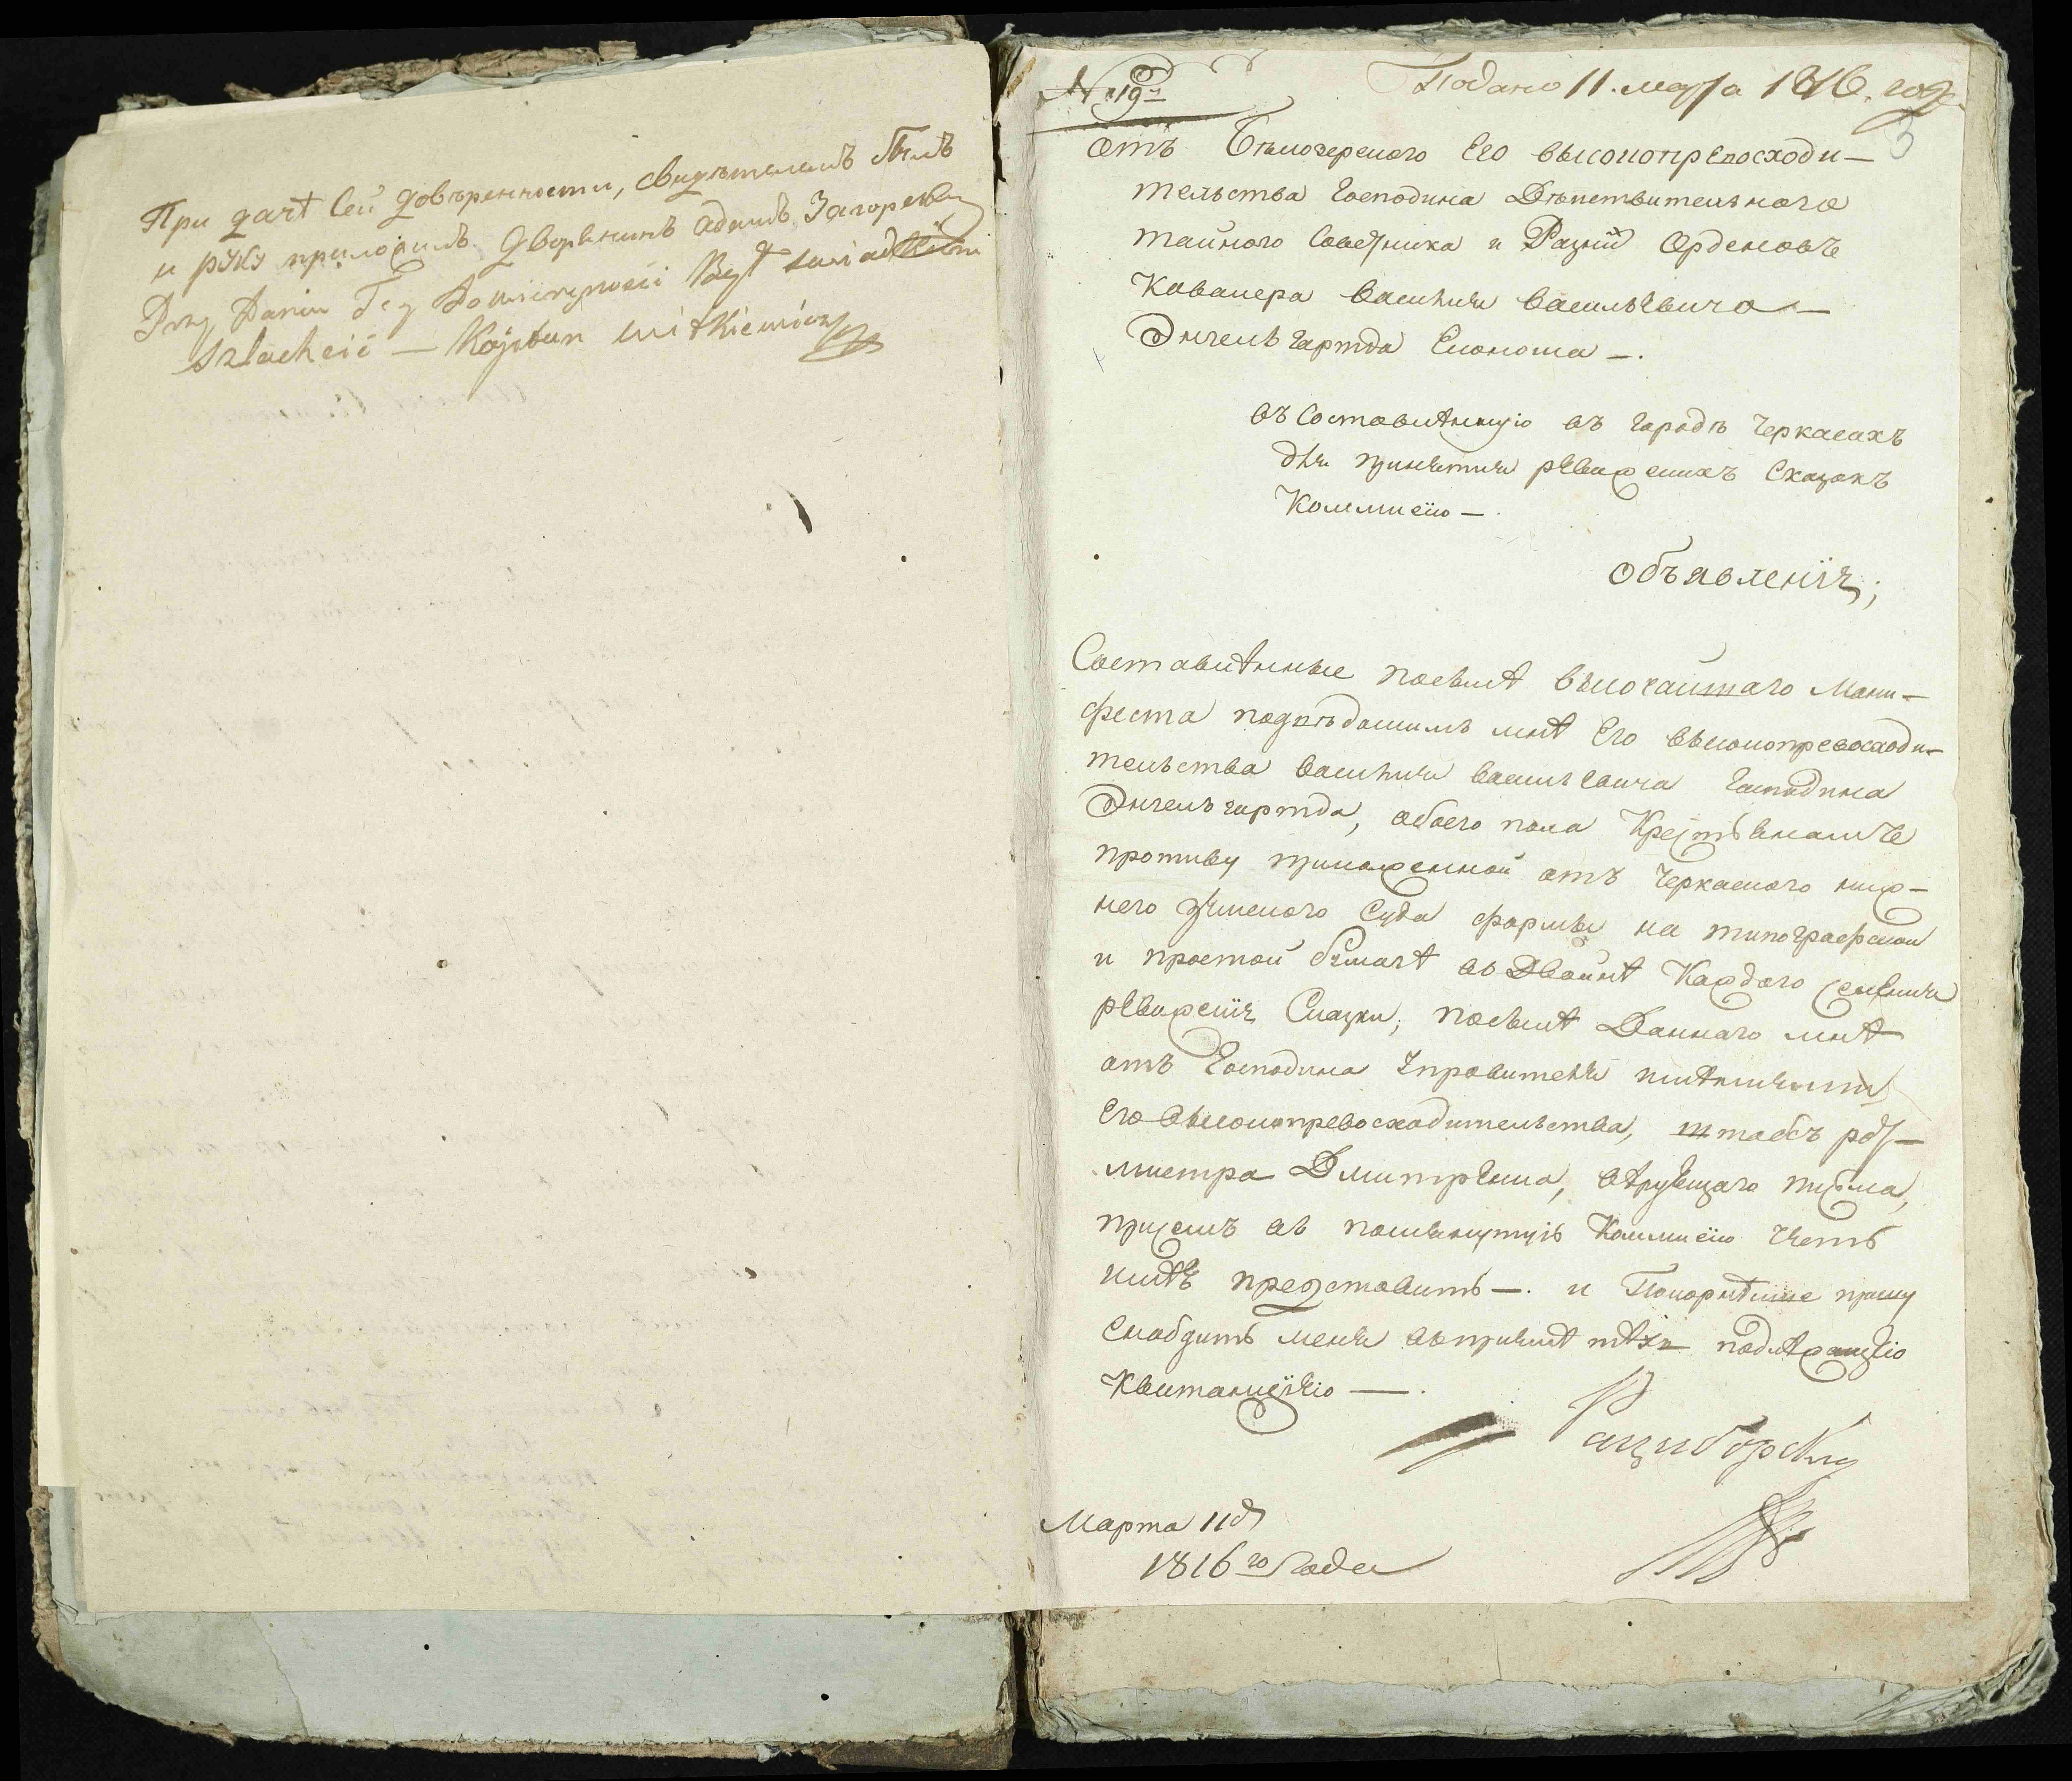 При дачѣ сей довѣренности, свидѣтелемъ былъ
и руку приложилъ Дворянинъ Адамъ Загорский
Przy Daniu Tey Dowierzności Był
Szlachcic — Kajetan Witkiewicz
№ 19й
Подано 11. марта 1816. года
3
отъ Бѣлозерского Его высокопревосходи-
тельства Господина Дѣйствительного
тайного Советника и Разных Орденовъ
Кавалера Василия Васильевича —
Энгельгартда Економа —.
въ составленную въ городѣ Черкасахъ
для принятия ревижскихъ сказокъ
Коммисию —.
Объявление;
Составленные послѣ высочайшаго Мани-
феста подвѣдомымъ мнѣ Его высокопревосходи-
тельства Василия Васильевича Господина
Энгельгартда, обоего пола Крестьянамъ
противу приложенной отъ Черкаского ниж-
него земского Суда формы на типографской
и простой бумагѣ въ Двойнѣ Каждого селения
ревижския Сказки, послѣ Даннаго мнѣ
отъ Господина Управителя
Его высокопревосходительства, штабсъ рот-
мистра Дмитренка, вѣрующаго письма,
при семъ въ помянутую Коммисию честь
имѣя представить —. и Покорнѣйше прошу
снабдить меня въ приемѣ тѣхъ подлежащею
Квитанциею —.
Рациборский
Марта 11 д
1816го Года